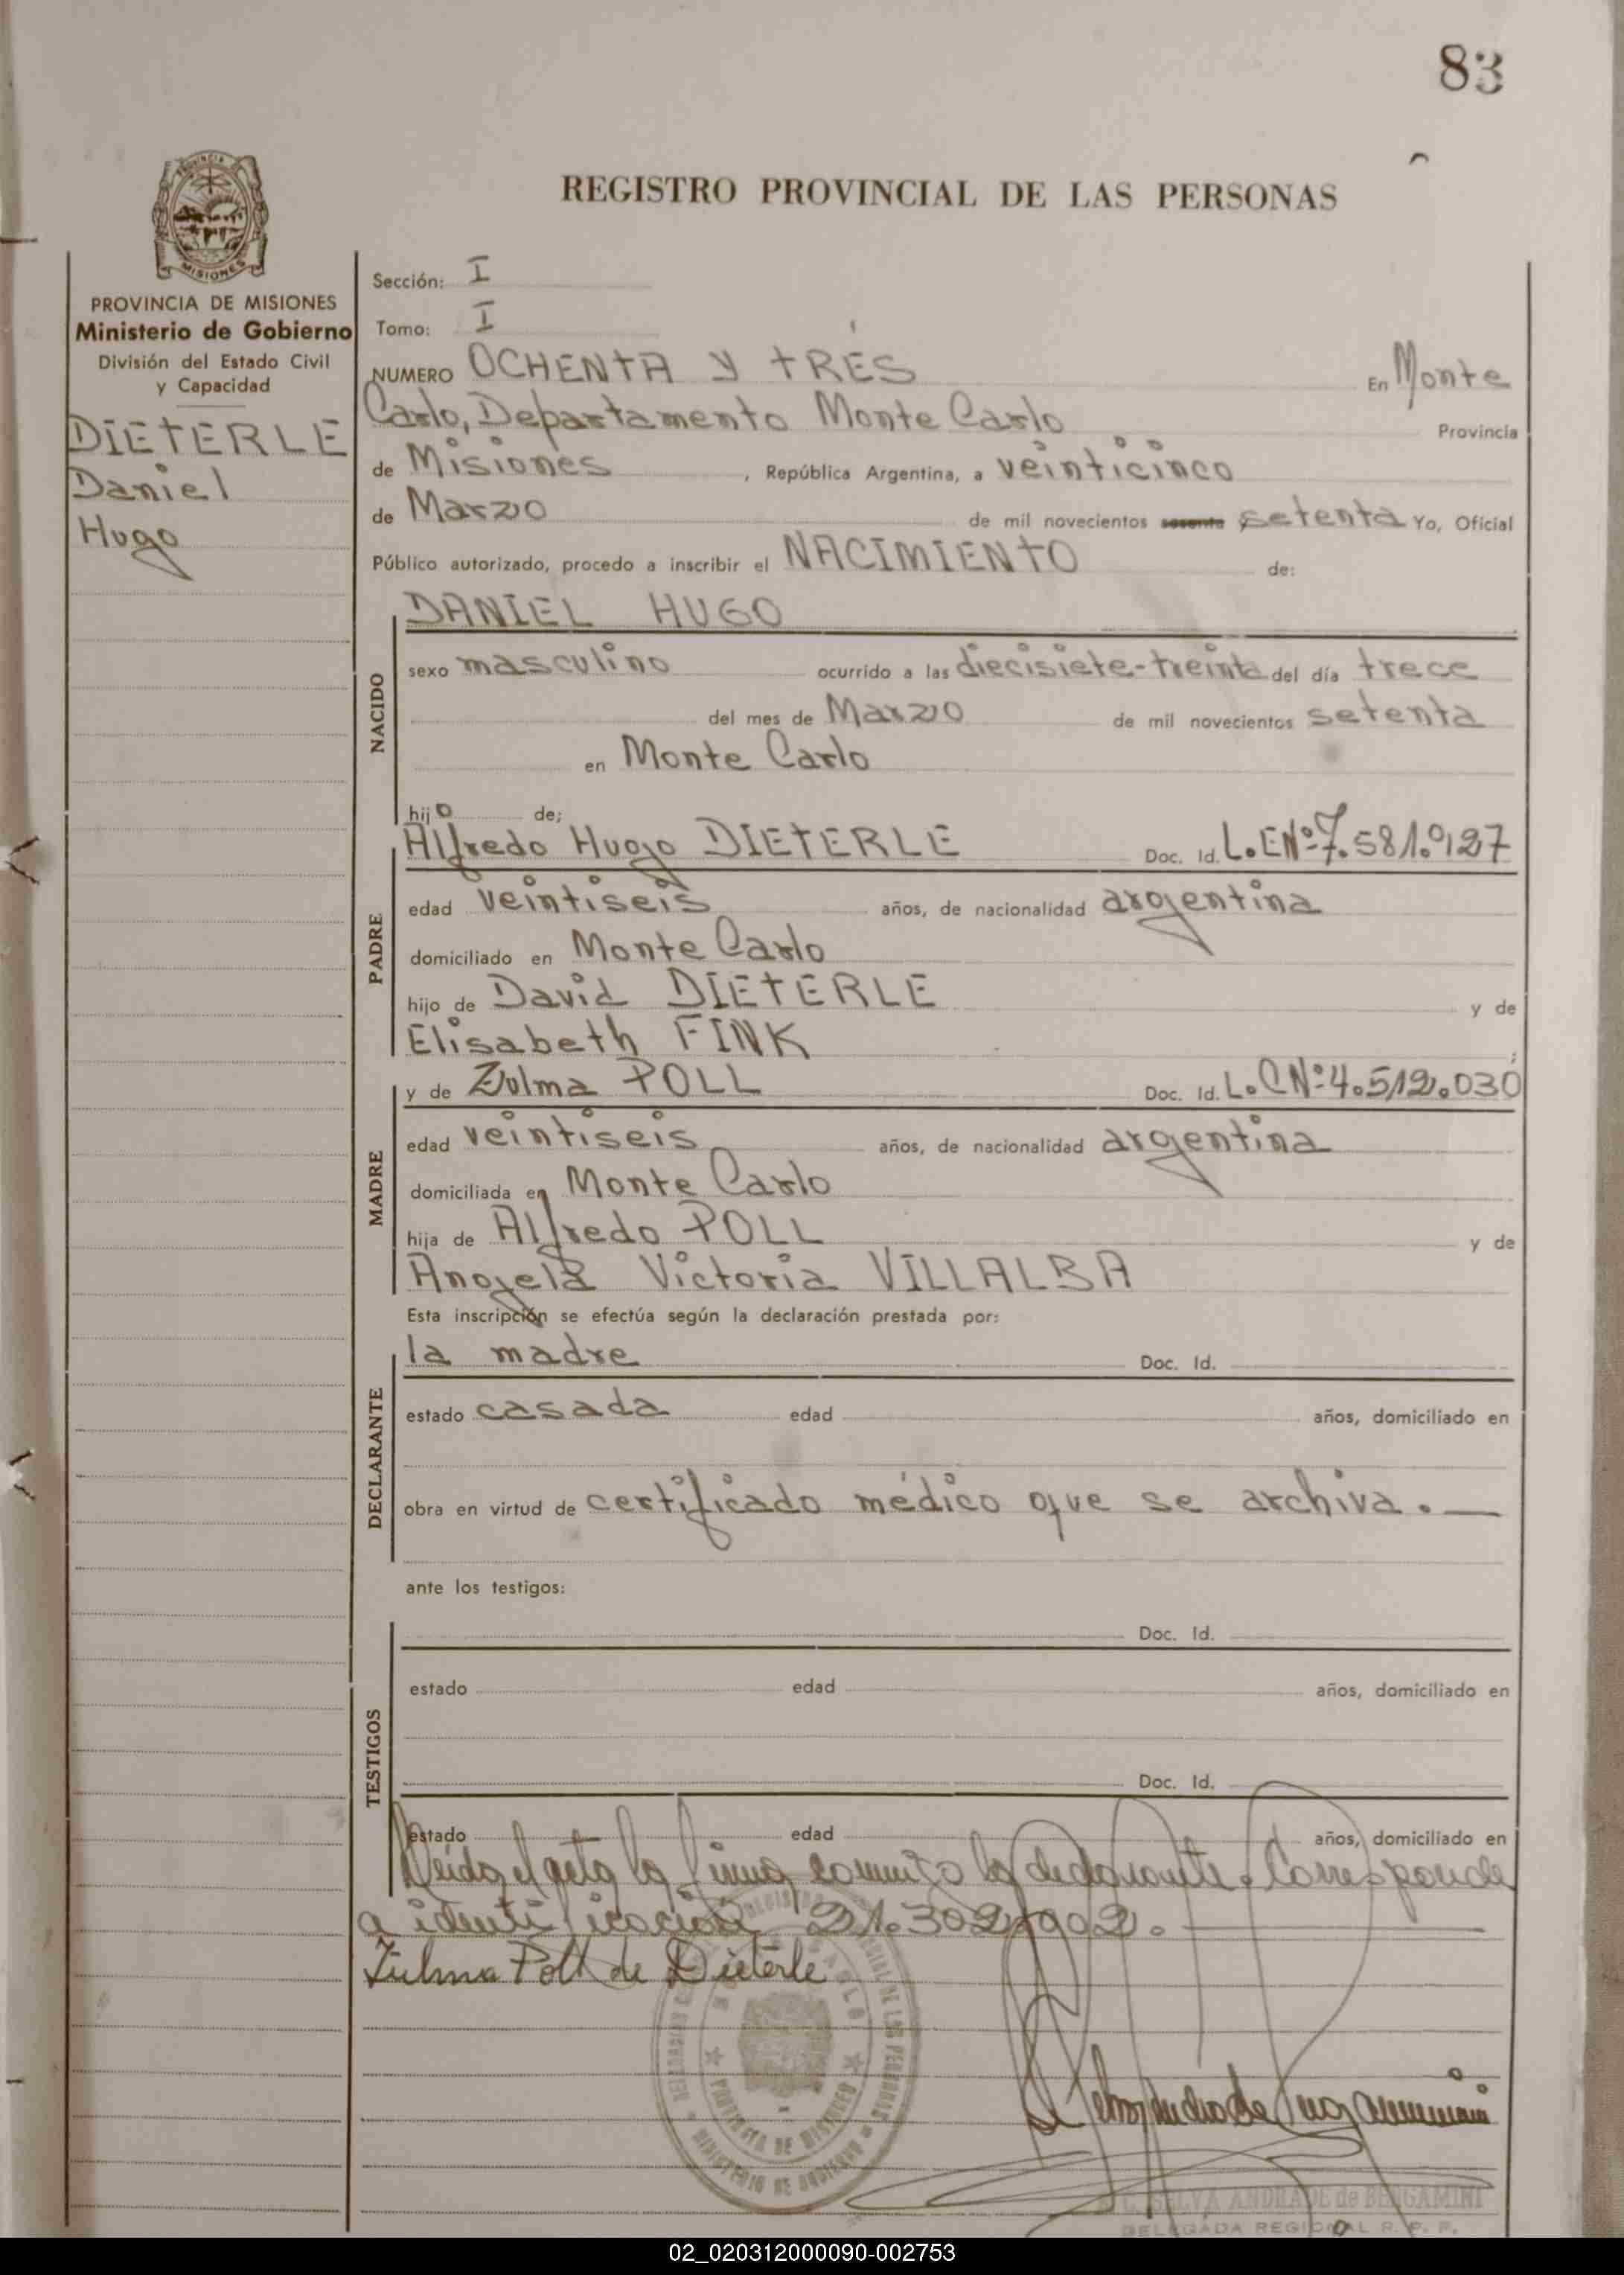 83
REGISTRO PROVINCIAL DE LAS PERSONAS
PROVINCIA
MISIONES
PROVINCIA DE MISIONES
Ministerio de Gobierno
División del Estado Civil
y Capacidad
DIETERLE
Daniel
Hugo
Sección: I
Tomo: I
NUMERO OCHENTA Y TRES En Monte
Carlo, Departamento Monte Carlo Provincia
de Misiones, República Argentina, a veinticinco
de Marzo de mil novecientos sesenta setenta Yo, Oficial
Público autorizado, procedo a inscribir el NACIMIENTO de:
NACIDO
DANIEL HUGO
sexo masculino ocurrido a las diecisiete-treinta del día trece
del mes de Marzo de mil novecientos setenta
en Monte Carlo
hijo de;
PADRE
Alfredo Hugo DIETERLE Doc. Id. L.ENº 7.581.127
edad veintiseis años, de nacionalidad argentina
domiciliado en Monte Carlo
hijo de David DIETERLE y de
Elisabeth FINK
MADRE
y de Zulma POLL Doc. Id. L.CNº 4.512.030
edad veintiseis años, de nacionalidad argentina
domiciliada en Monte Carlo
hija de Alfredo POLL y de
Angela Victoria VILLALBA
Esta inscripción se efectúa según la declaración prestada por:
DECLARANTE
la madre Doc. Id.
estado casada edad años, domiciliado en
obra en virtud de certificado médico que se archiva.
ante los testigos:
TESTIGOS
Doc. Id.
estado edad años, domiciliado en
Doc. Id.
estado edad años, domiciliado en
Leída el acta la firma conmigo la declarante. Corresponde
a identificación 21.302.902.
Zulma Poll de Dieterle
PROVINCIA DE MISIONES
MINISTERIO DE GOBIERNO
SELVA ANDRADE de BERGAMINI
DELEGADA REGIONAL R. P. P.
02_020312000090-002753